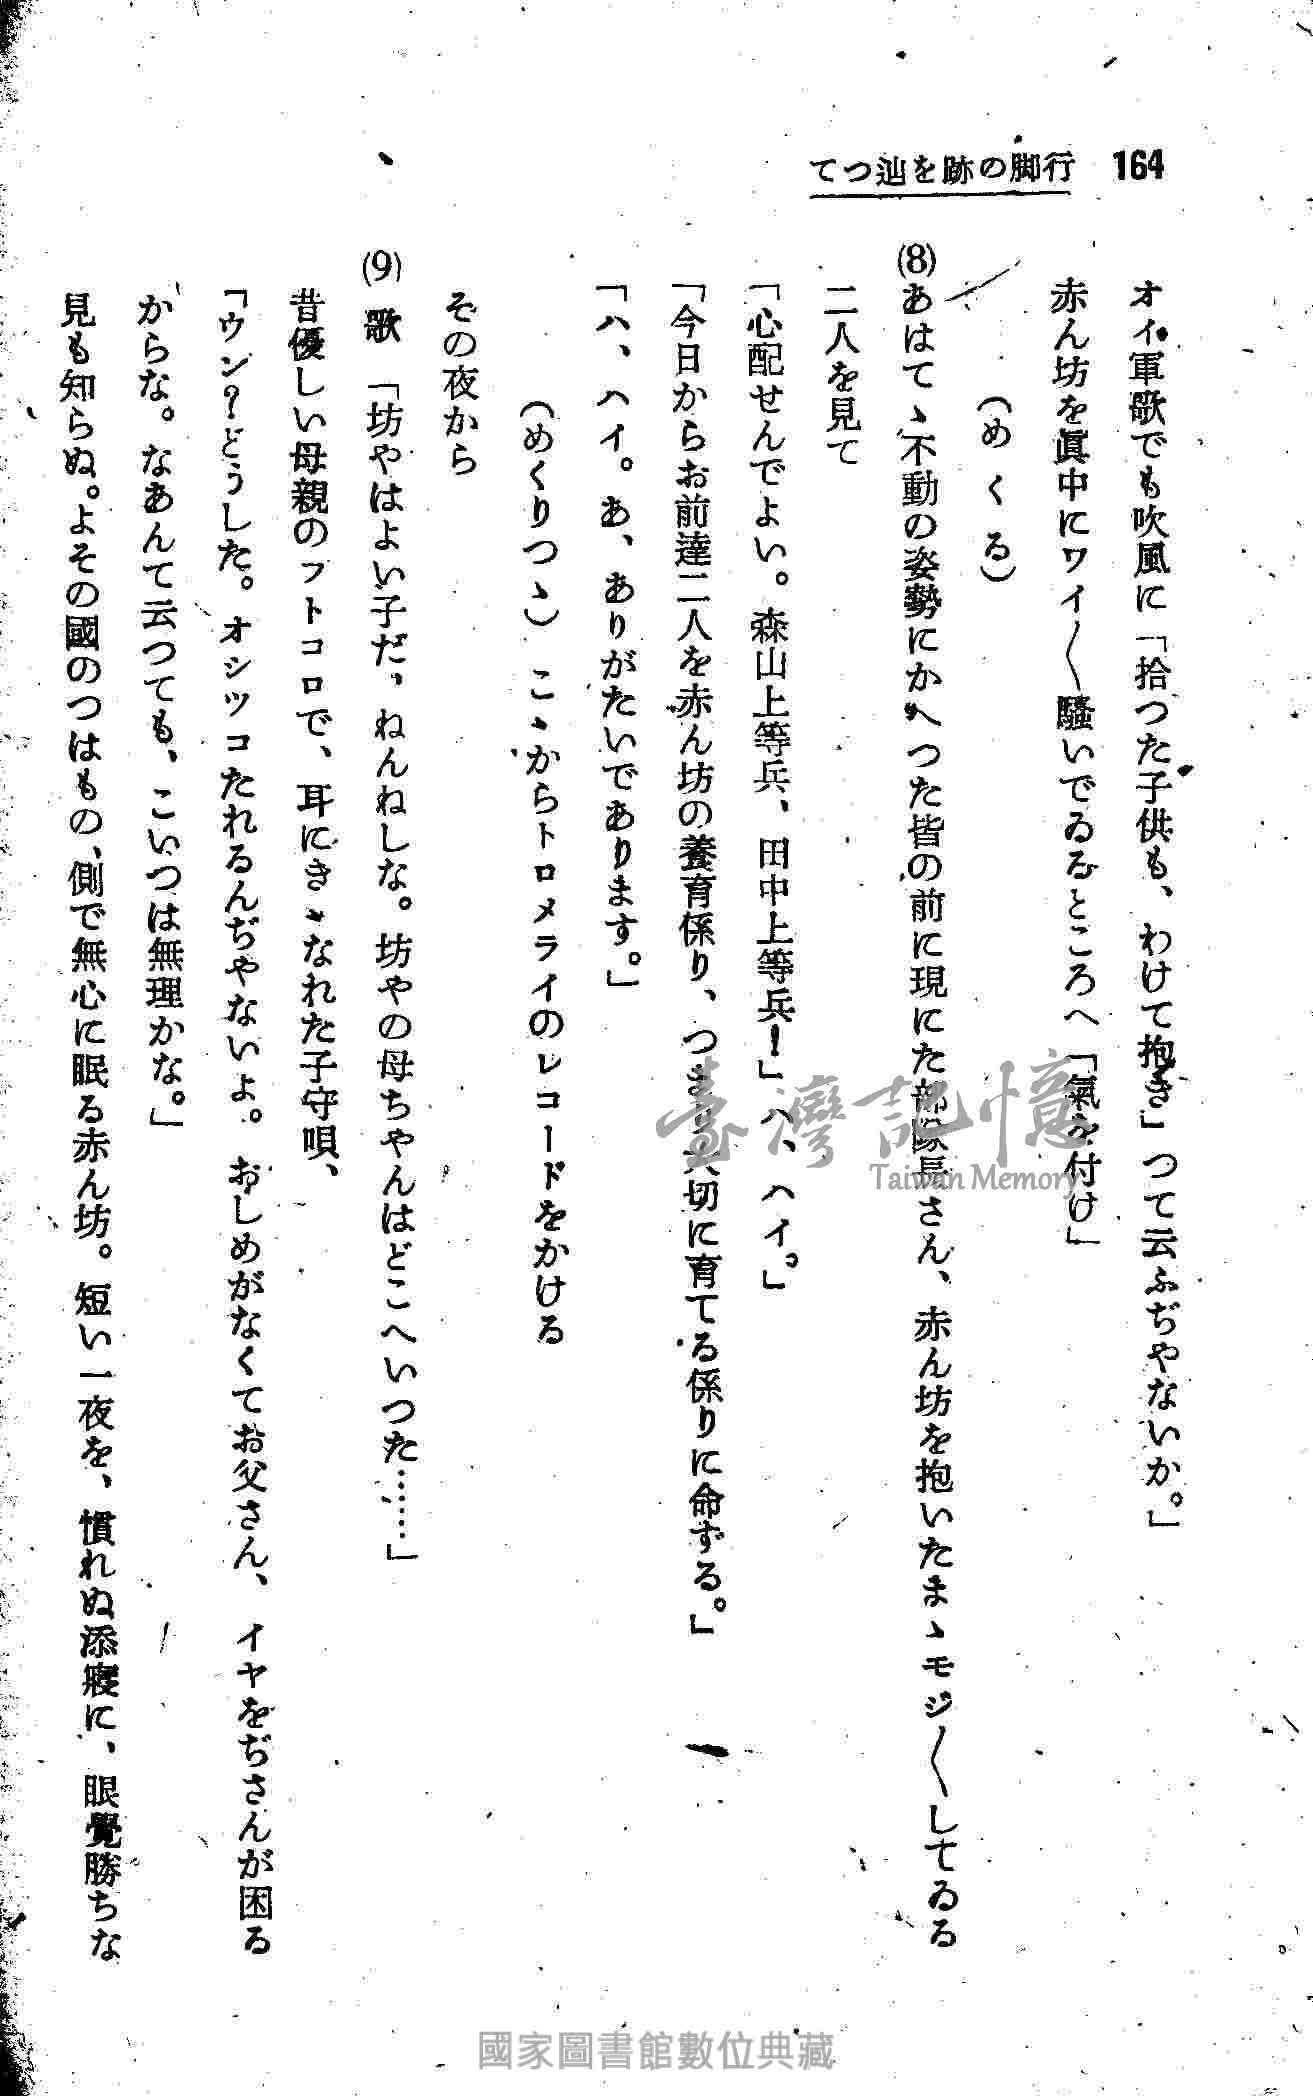 164 行脚の跡を辿つて
オイ軍歌でも吹風に「拾つた子供も、わけて抱き」つて云ふぢやないか。」
赤ん坊を眞中にワイ〱騷いでゐるところへ「氣を付け」
（めくる）
(8) あはてゝ不動の姿勢にかへつた皆の前に現にた部隊長さん、赤ん坊を抱いたまゝモジ〱してゐる
二人を見て
「心配せんでよい。森山上等兵、田中上等兵！」ハ、ハイ。」
「今日からお前達二人を赤ん坊の養育係り、つまり大切に育てる係りに命ずる。」
「ハ、ハイ。あ、ありがたいであります。」
（めくりつゝ）こゝからトロメライのレコードをかける
その夜から
(9) 歌 「坊やはよい子だ，ねんねしな。坊やの母ちやんはどこへいつた……」
昔優しい母親のフトコロで、耳にきゝなれた子守唄、
「ウン？どうした。オシツコたれるんぢやないよ。おしめがなくてお父さん、イヤをぢさんが困る
からな。なあんて云つても、こいつは無理かな。」
見も知らぬ。よその國のつはもの、側で無心に眠る赤ん坊。短い一夜を、慣れぬ添寢に、眼覺勝ちな
臺灣記憶
Taiwan Memory
國家圖書館數位典藏